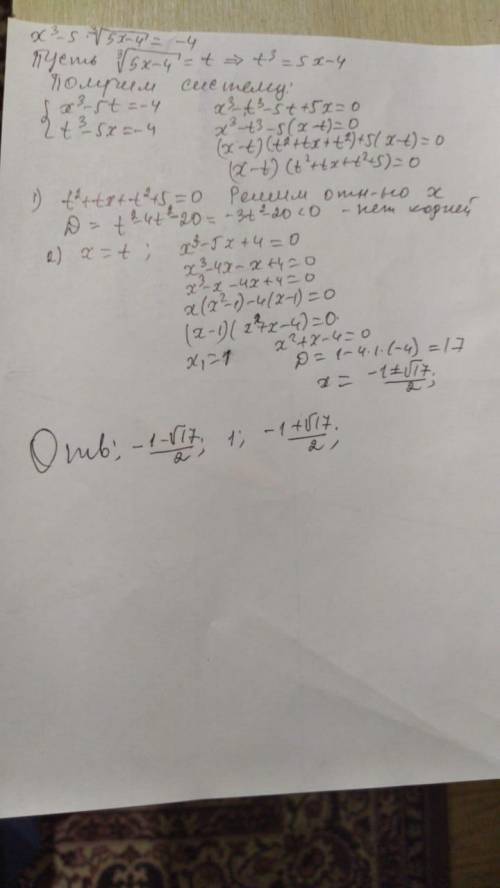 x³-5 ∛(5x-4) = -4
Пусть ∛(5x-4) = t ⇒ t³ = 5x-4
Получим систему:
{ x³-5t=-4
t³-5x=-4
x³-t³-5t+5x=0
x³-t³-5(x-t)=0
(x-t)(t²+tx+t²)+5(x-t)=0
(x-t)(t²+tx+t²+5)=0
1) t²+tx+t²+5=0 Решим отн-но x
D = t²-4t²-20 = -3t²-20<0 - нет корней
2) x=t; x³-5x+4=0
x³-4x-x+4=0
x³-x-4x+4=0
x(x²-1)-4(x-1)=0
(x-1)(x²+x-4)=0
x₁=1
x²+x-4=0
D=1-4·1·(-4)=17
x = (-1±√17)/2;
Отв; (-1-√17)/2; 1; (-1+√17)/2;